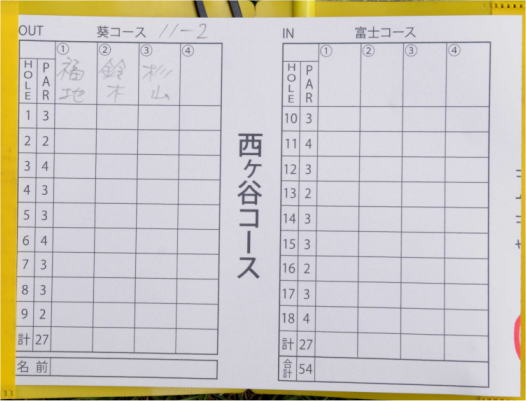 OUT 葵コース 11-2
① ② ③ ④
HOLE PAR 福地 鈴木 杉山
1 3
2 2
3 4
4 3
5 3
6 4
7 3
8 3
9 2
計 27
名前
西ヶ谷コース
IN 富士コース
① ② ③ ④
HOLE PAR
10 3
11 4
12 3
13 2
14 3
15 3
16 2
17 3
18 4
計 27
合計 54